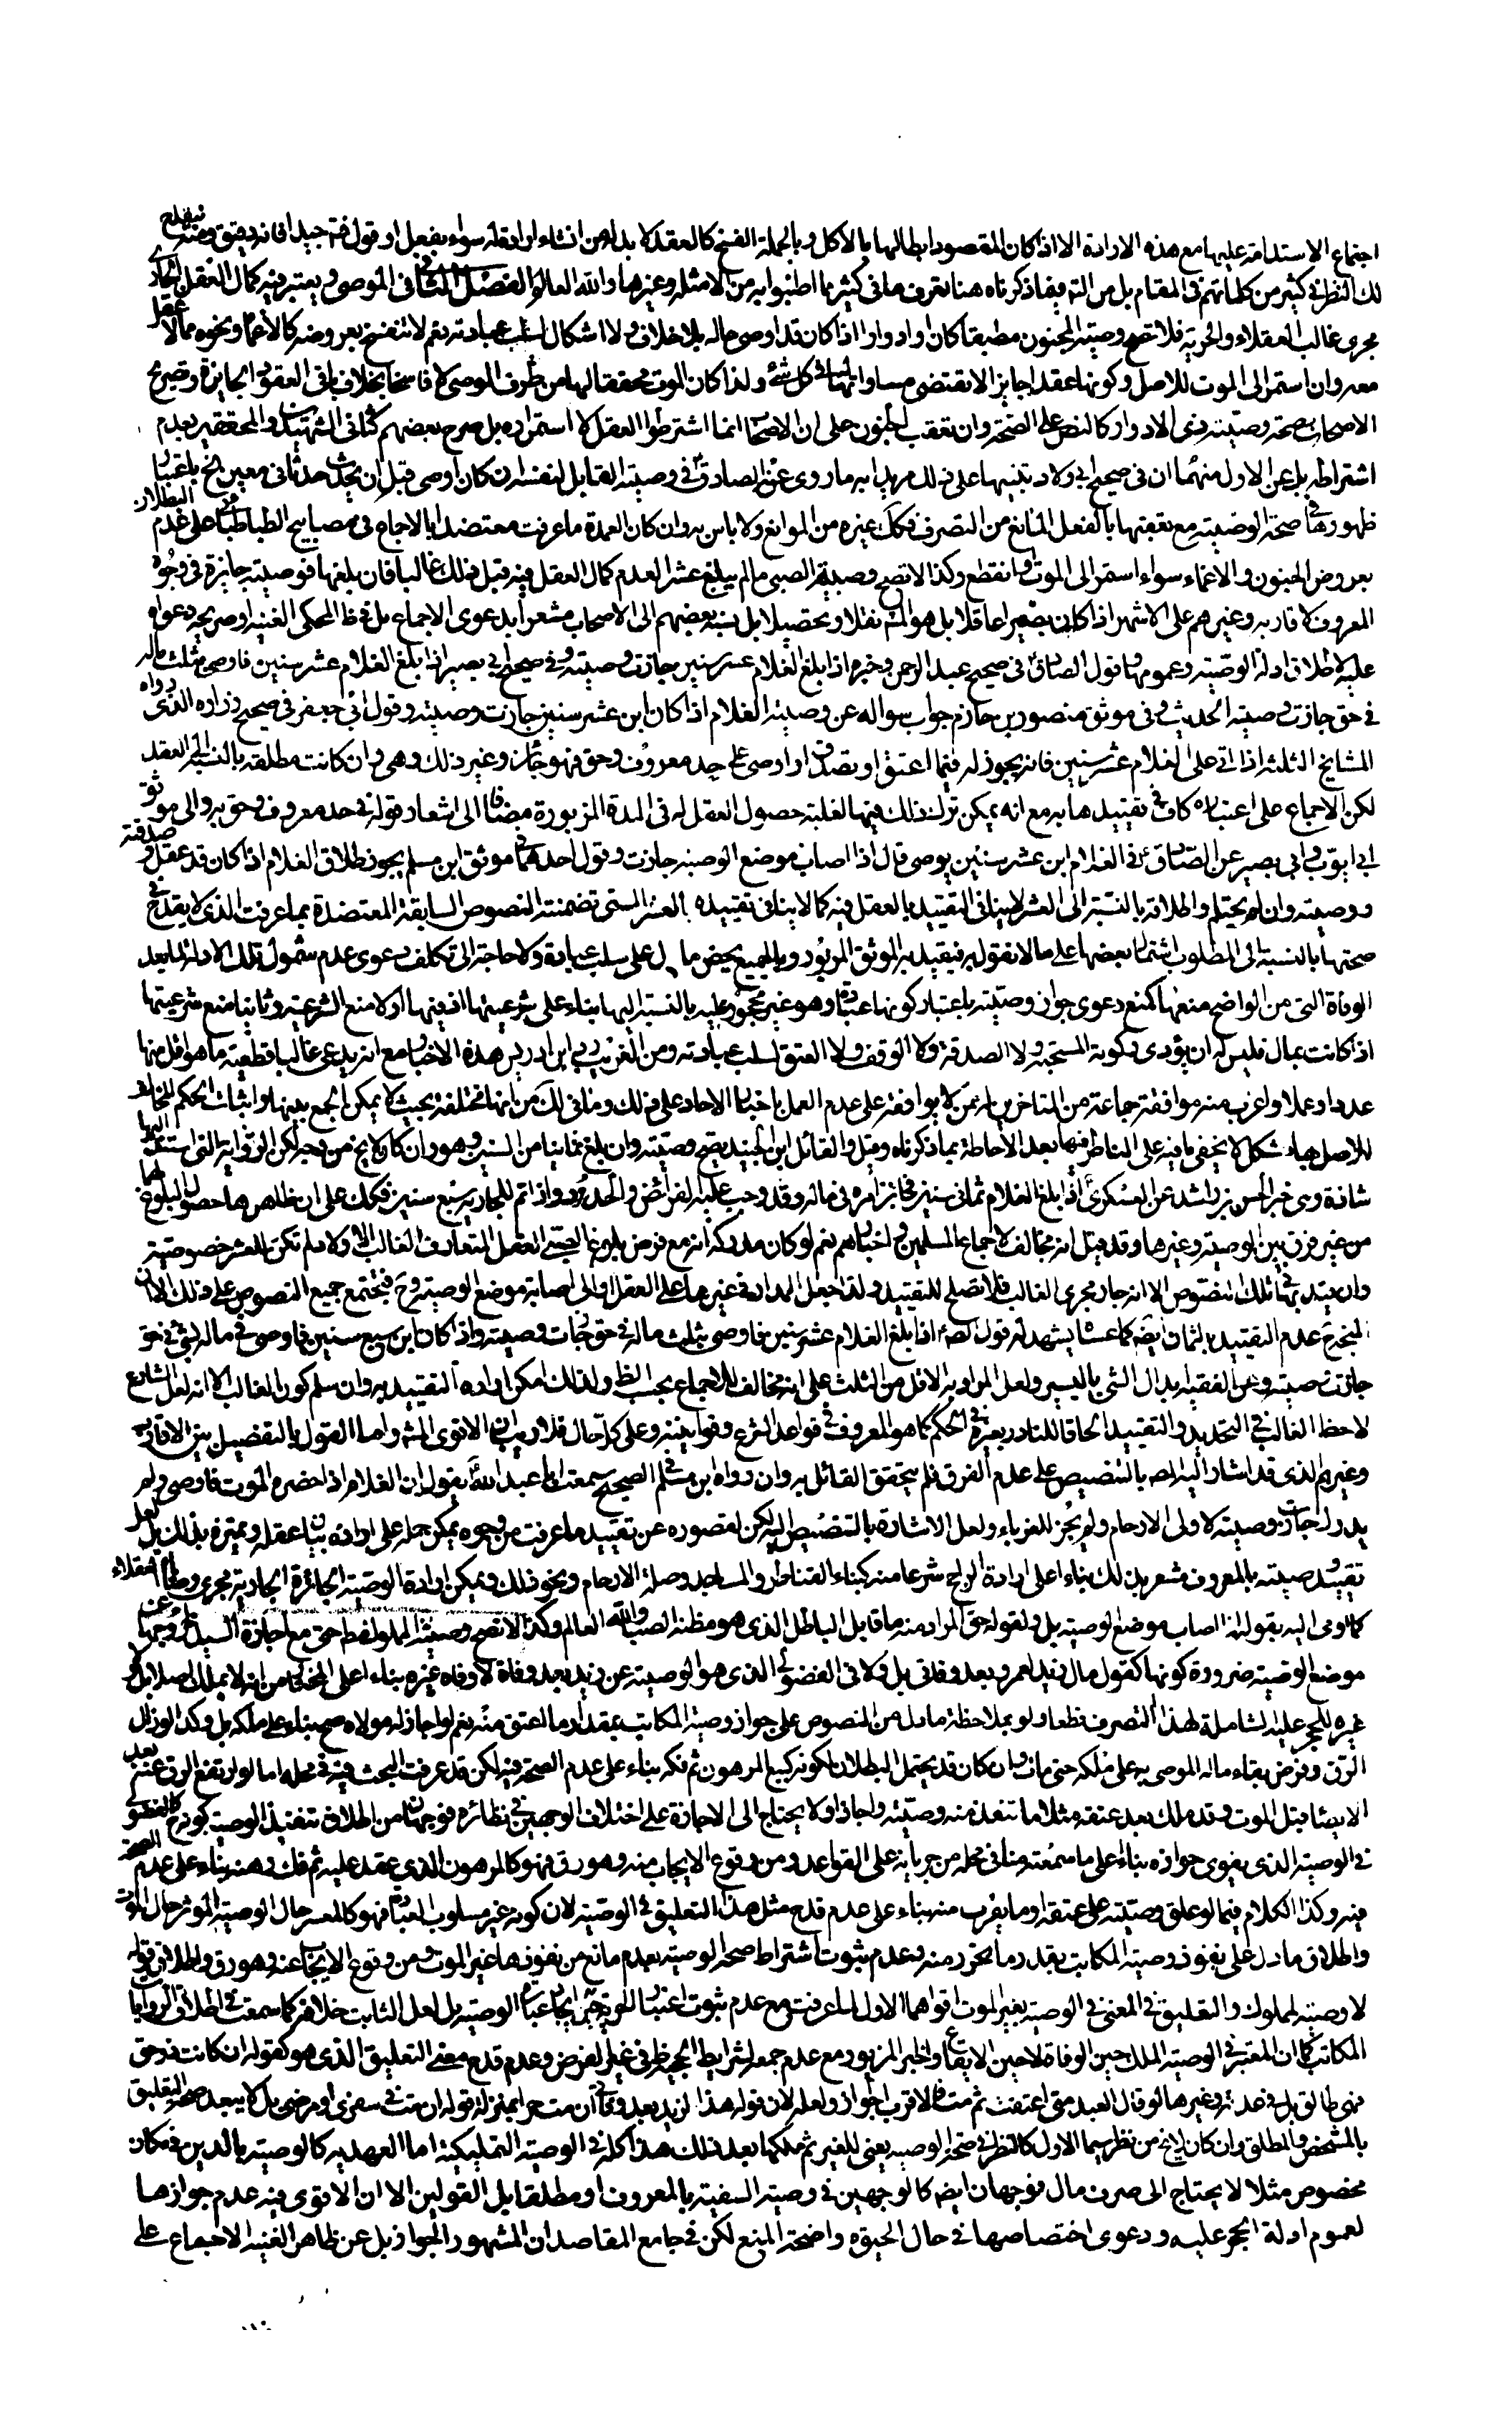 اجتماع الاستدامة عليها مع هذه الارادة الا اذا كان المقصود ابطالها بالاكل وبالجملة الفسخ كالعقد لا بد له من انشاء ارادته سواء بفعل او قول فته جيدا فانه دقيق ومنه ينقدح
لك النظر في كثير من كلماتهم في المقام بل من التدبر فيما ذكرناه هنا تعرف ما في كثير مما اطنبوا به من الامثلة وغيرها والله العالم الفصل الثاني في الموصي ويعتبر فيه كمال العقل
مجرى غالب العقلاء والحرية فلا تصح وصية المجنون مطبقا كان او ادوارا اذا كان قد اوصى حاله بلا خلاف ولا اشكال لسلب عبادته نعم لا تنفسخ بعروضه كالاغماء ونحوه مما لا عقل
معه وان استمر الى الموت للاصل وكونها عقدا جايزا لا يقتضي مساواتها في كل شئ ولذا كان الموت محققا لها من طرف الموصي لا فاسخا بخلاف باقي العقود الجايزة وتصريح
الاصحاب بصحة وصية ذي الادوار كالنص على الصحة وان تعقب الجنون على ان الاصحاب انما اشترطوا العقل لا استمراره بل صرح بعضهم كثاني الشهيدين والمحققين بعدم
اشتراطه بل عن الاول منهما ان في صحيح ابي ولاد تنبيها على ذلك مريدا به ما روى عن الصادق في وصية القاتل لنفسه ان كان اوصى قبل ان يحدث حدثا في نفسه الخ باعتبار
ظهورها في صحة الوصية مع تعقبها بالفعل المانع من التصرف فكك غيره من الموانع ولا باس به وان كان العمدة ما عرفت معتضدا بالاجماع في مصابيح الطباطبائي على عدم البطلان
بعروض الجنون والاغماء سواء استمر الى الموت او انقطع وكذا لا تصح وصية الصبي ما لم يبلغ عشرا لعدم كمال العقل فيه قبل ذلك غالبا فان بلغها فوصيته جايزة في وجوه
المعروف لاقاربه وغيرهم على الاشهر اذا كان بصيرا عاقلا بل هو المشهور نقلا وتحصيلا بل نسبه بعضهم الى الاصحاب مشعرا بدعوى الاجماع بل في ظاهر المحكي الغنية او صريحه دعواه
عليه لاطلاق ادلة الوصية وعمومها وقول الصادق في صحيح عبد الرحمن وخبره اذا بلغ الغلام عشر سنين جازت وصيته وفي صحيح ابي بصير اذا بلغ الغلام عشر سنين فاوصى بثلث ماله
في حق جازت وصيته الحديث وفي موثق منصور بن حازم جواب سواله عن وصية الغلام اذا كان ابن عشر سنين جازت وصيته وقول ابي جعفر في صحيح زرارة الذي رواه
المشايخ الثلثة اذا اتى على الغلام عشر سنين فانه يجوز له فيما اعتق او تصدق او اوصى على حد معروف وحق فهو جائز وغير ذلك وهي وان كانت مطلقة بالنسبة الى العقد
لكن الاجماع على اعتباره كاف في تقييدها به مع انه يمكن ترك ذلك فيها لغلبة حصول العقل له في المدة المزبورة مضافا الى اشعار قوله في حد معروف وحق به والى موثق
ابي ايوب وابي بصير عن الصادق في الغلام ابن عشر سنين يوصي قال اذا اصاب موضع الوصية جازت وقول احدهما في موثق ابن مسلم يجوز طلاق الغلام اذا كان قد عقل وصدقته
ووصيته وان لم يحتلم واطلاقه بالنسبة الى العشر لا ينافي التقييد بالعقل فيه كما لا ينافي تقييده بالعشر المستى تضمنته النصوص السابقة المعتضدة بما عرفت الذي لا يقدح في
صحتها بالنسبة الى المطلوب اشتمال بعضها على ما لا نقول به فيقيد به الموثق المزبور وبالجميع يخص ما دل على سلب عبادته ولا حاجة الى تكلف دعوى عدم شمول تلك الادلة لما بعد
الوفاة التي من الواضح منعها كمنع دعوى جواز وصيته باعتبار كونها عبادة وهو غير محجور عليه بالنسبة اليها بناء على شرعيتها اذ فيها اولا منع الشرعية وثانيا منع شرعيتها
اذا كانت بمال فليس له ان يؤدي زكوته المستحبة ولا الصدقة ولا الوقف ولا العتق لسلب عبادته ومن الغريب رمي ابن ادريس هذه الاخبار مع انه يدعي غالبا قطعية ما هو اقل منها
عددا وعملا واغرب منه موافقة جماعة من المتاخرين له ممن لا يوافقه على عدم العمل باخبار الاحاد على ذلك وما في لك من انها مختلفة بحيث لا يمكن الجمع بينها واثبات الحكم المخالف
للاصل بها مشكل لا يخفى ما فيه على الناظر فيها بعد الاحاطة بما ذكرناه وقيل والقائل ابن الجنيد تصح وصيته وان بلغ ثمانيا من السنين وهو وان كان لا يخ من وجه لكن الرواية التي استند اليها
شاذة وهي خبر الحسن بن راشد عن العسكري اذا بلغ الغلام ثماني سنين فجائز امره في ماله وقد وجب عليه الفرائض والحدود واذا تم للجارية سبع سنين فكك على ان ظاهرها حصول البلوغ لهما
من غير فرق بين الوصية وغيرها وقد قيل انه مخالف لاجماع المسلمين واخبارهم نعم لو كان مدركه انه مع فرض بلوغ الصبي العقل المتعارف الغالب اولا ولم تكن العشر خصوصية
وان قيد بها في تلك النصوص الا انه جار مجرى الغالب فلا تصلح للتقييد ولذا جعل المدار في غيرها على العقل والى اصابة موضع الوصية وح فتجتمع جميع النصوص على ذلك الا ان
المتجه ح عدم التقييد بالثمان ايضا كما عساه يشهد له قول الصادق اذا بلغ الغلام عشر سنين فاوصى بثلث ماله في حق جازت وصيته واذا كان ابن سبع سنين فاوصى من ماله بشئ في حق
جازت وصيته وعن الفقيه بدال الشئ باليسير ولعل المراد به الاقل من الثلث على انه مخالف للاجماع بحسب الظ ولذلك امكن ارادة التقييد به وان سلم كون الغالب الا انه لعل الشايع
لاحظ الغالب في التحديد والتقييد الحاقا للنادر بغيره في الحكم كما هو المعروف في قواعد الشرع وقوانينه وعلى كل حال فلا ريب في ان الاقوى المشهور واما القول بالتفصيل بين الاقارب
وغيرهم الذي قد اشار اليه المصنف بالتنصيص على عدم الفرق فلم يتحقق القائل به وان رواه ابن مسلم في الصحيح سمعت ابا عبد الله يقول ان الغلام اذا حضره الموت فاوصى ولم
يدرك جازت وصيته لاولي الارحام ولم يجز للغرباء ولعل الاشارة بالتنصيص اليه لكن لقصوره عن تقييد ما عرفت من وجوه يمكن حمله على ارادة بيان عقله وتميزه بذلك بل لعل
تقييد وصيته بالمعروف مشعر بذلك بناء على ارادة الراجح شرعا منه كبناء القناطر والمساجد وصلة الارحام ونحو ذلك ويمكن ارادة الوصية الجائزة الجارية مجرى وصايا العقلاء
كما اومى اليه بقوله اذا اصاب موضع الوصية بل ولقوله حق المراد منه ما قابل الباطل الذي هو مظنة لصبا والله العالم وكذا لا تصح وصية المملوك قطعا حتى مع اجازة السيد لخروجها عن
موضع الوصية ضرورة كونها كقول مال زيد لعمرو بعد وفاتي بل ولا في الفضولي الذي هو الوصية عن زيد بعد وفاة لا وفاة غيره بناء على المختار من انه لا يملك اصلا بل و
غيره للحجر عليه الشاملة لهذا التصرف قطعا ولو بملاحظة ما دل من النصوص على جواز وصية المكاتب بقدر ما اعتق منه نعم لو اجاز له مولاه صح بناء على ملكه بل وكذا لو زال
الرق وفرض بقاء ماله الموصى به على ملكه حتى مات وان كان قد يحتمل البطلان لكونه كبيع المرهون ثم فكه بناء على عدم الصحة فيه لكن قد عرفت البحث فيه في محله اما لو ارتفع الرق عنه بعد
الايصاء قبل الموت وقد ملك بعد عتقه مثلا ما تنفذ منه وصيته واجاز او لا يحتاج الى الاجازة على اختلاف الوجهين في نظائره فوجهان من اطلاق تنفيذ الوصية كونه ح كالفضولي
في الوصية الذي يقوى جوازه بناء على ما سمعته منا في محله من جريانه على القواعد ومن وقوع الايجاب منه وهو رق فهو كالمرهون الذي عقد عليه ثم فك رهنه بناء على عدم الصحة
فيه وكذا الكلام فيما لو علق وصيته على عتقه او ما يقرب منه بناء على عدم قدح مثل هذا التعليق في الوصية لان كونه غير مسلوب العبادة فهو كالمعسر حال الوصية الموثر حال الموت
واطلاق ما دل على نفوذ وصية المكاتب بقدر ما تحرر منه وعدم ثبوت اشتراط صحة الوصية بعدم مانع من نفوذها غير الموت ومن وقوع الايجاب عنه وهو رق واطلاق قوله
لا وصية لمملوك والتعليق في المعنى في الوصية بغير الموت اقواهما الاول لما عرفت مع عدم ثبوت اعتبار الحرية حين ايجاب الوصية بل لعل الثابت خلافه كما سمعت في اطلاق الروايات
المكاتب كما ان المعتبر في الوصية الملك حين الوفاة لا حين الايقاع والخبر المزبور مع عدم جمعه لشرايط الحجية ظ في غير الفرض وعدم قدح معنى التعليق الذي هو كقوله ان كانت زوجتي
فهي طالق بل في عدته وغيرها لو قال العبد متى اعتقت ثم مت فالاقرب الجواز ولعله لان قوله هذا لزيد بعد وفاتي ان مت حرا بمنزلة قوله ان مت في سفري او مرضي بل لا يبعد صحة التعليق
بالمشخص والمطلق وان كان لا يخ من نظر سيما الاول كالنظر في صحة الوصية بمعنى للغير ثم ملكها بعد ذلك هذا كله في الوصية التمليكية اما العهدية كالوصية بالدين في مكان
مخصوص مثلا لا يحتاج الى صرف مال فوجهان ايضا كالوجهين في وصية السفيه بالمعروف او مطلقا بل القولين الا ان الاقوى فيه عدم جوازها
لعموم ادلة الحجر عليه ودعوى اختصاصها في حال الحيوة واضحة المنع لكن في جامع المقاصد ان المشهور الجواز بل عن ظاهر الغنية الاجماع على